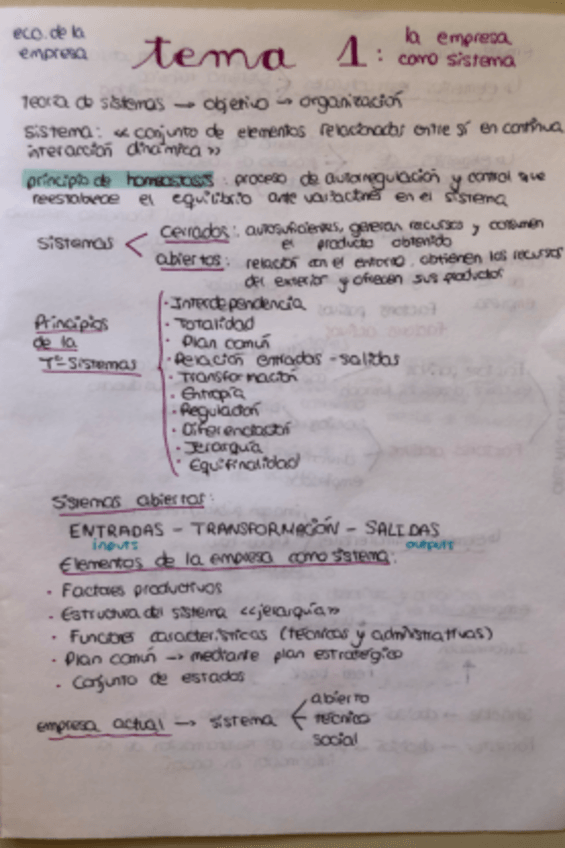 eco. de la
empresa
tema 1: la empresa
como sistema
Teoría de sistemas → objetivo → organización
Sistema: «conjunto de elementos relacionados entre sí en continua
interacción dinámica»
principio de homeostasis: proceso de autorregulación y control que
reestablece el equilibrio ante variaciones en el sistema
Sistemas
cerrados: autosuficientes, generan recursos y consumen
el producto obtenido
abiertos: relación con el entorno. obtienen los recursos
del exterior y ofrecen sus productos
Principios
de la
Tª-Sistemas
· Interdependencia
· Totalidad
· Plan común
· Relación entradas - salidas
· Transformación
· Entropía
· Regulación
· Diferenciación
· Jerarquía
· Equifinalidad
Sistemas abiertos:
ENTRADAS - TRANSFORMACIÓN - SALIDAS
inputs outputs
Elementos de la empresa como sistema:
· Factores productivos
· Estructura del sistema «jerarquía»
· Funciones características (técnicas y administrativas)
· Plan común → mediante plan estratégico
· Conjunto de estados
empresa actual → sistema
abierto
técnico
social